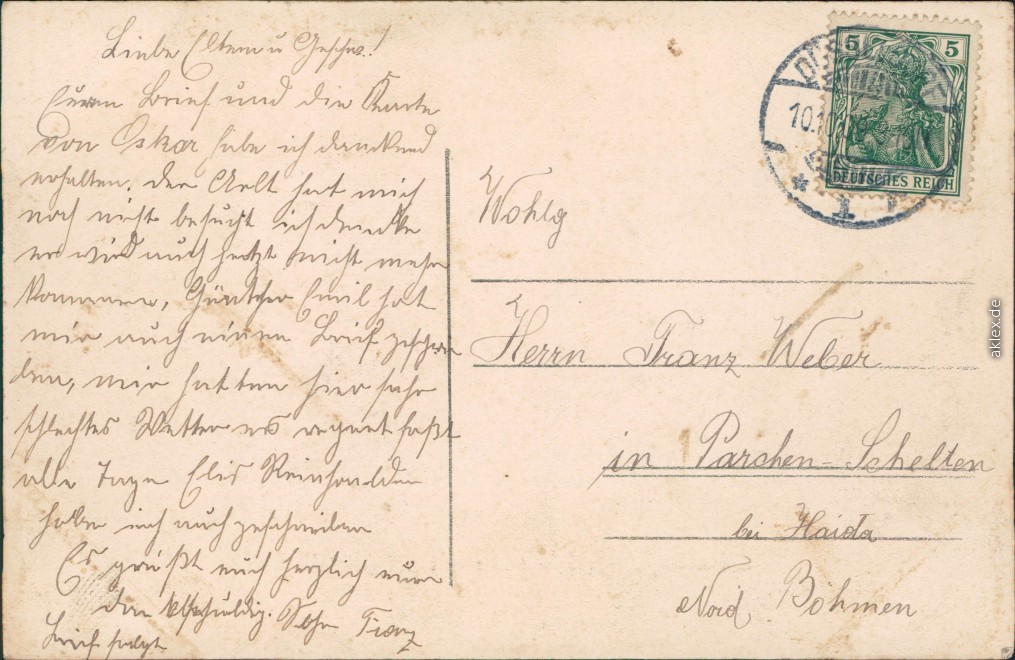 Liebe Eltern u Geschw.!
Euren Brief und die Karte
von Oskar habe ich dankend
erhalten. Der Arlt hat mich
noch nicht besucht ich dencke
er wird auch jetzt nicht mehr
kommen, Günther Emil hat
mir auch einen Brief geschrie
ben, wir hatten hier sehr
schlechtes Wetter es regnet faßt
alle Tage Elis
habe ich auch geschrieben
Es grüßt euch herzlich euer
Sohn Franz
Brief folgt
Wohlg
Herrn Franz Weber
in Parchen-Schelten
bei Haida
Nord Böhmen
5 5
DEUTSCHES REICH
10.10
1
aklex.de